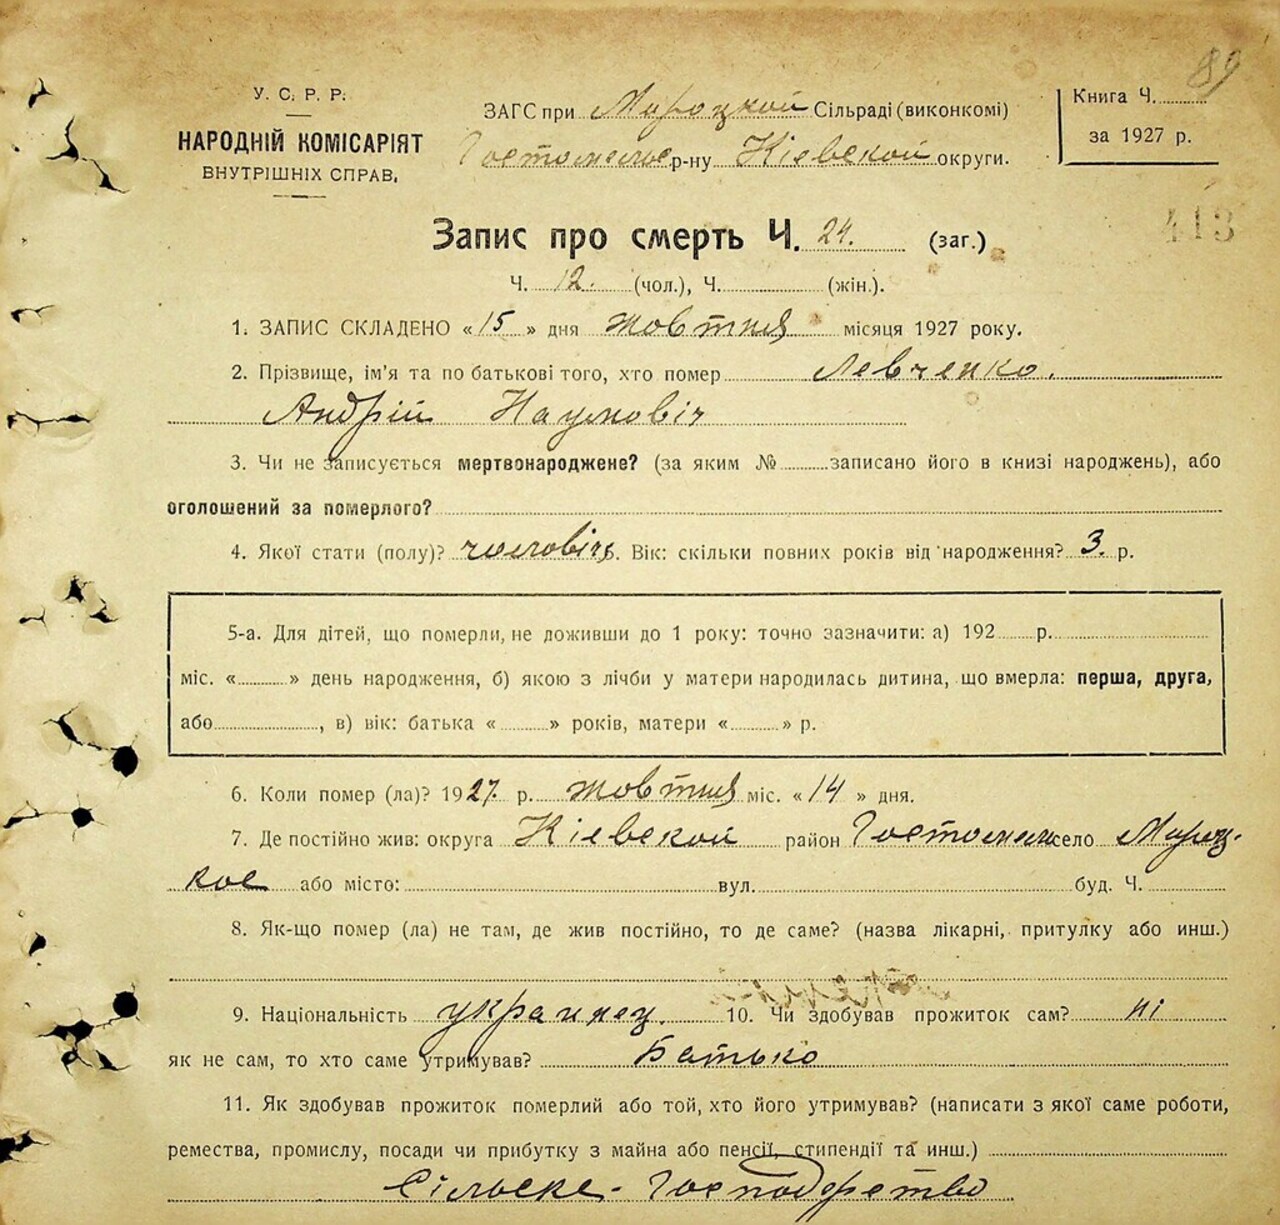 89
У. С. Р. Р.
НАРОДНІЙ КОМІСАРІЯТ
ВНУТРІШНІХ СПРАВ,
ЗАГС при Мироцкой Сільраді (виконкомі)
Гостомельс р-ну Кіевской округи.
Книга Ч.
за 1927 р.
413
Запис про смерть Ч. 24. (заг.)
Ч. 12. (чол.), Ч. (жін.).
1. ЗАПИС СКЛАДЕНО « 15 » дня жовтня місяця 1927 року.
2. Прізвище, ім'я та по батькові того, хто помер Левченко.
Андрій Наумовіч
3. Чи не записується мертвонароджене? (за яким № записано його в книзі народжень), або
оголошений за померлого?
4. Якої стати (полу)? чоловіч 5. Вік: скільки повних років від народження? 3. р.
5-а. Для дітей, що померли, не доживши до 1 року: точно зазначити: а) 192 р.
міс. « » день народження, б) якою з лічби у матери народилась дитина, що вмерла: перша, друга,
або , в) вік: батька « » років, матери « » р.
6. Коли помер (ла)? 1927. р. жовтня міс. « 14 » дня.
7. Де постійно жив: округа Кіевской район Гостомел село Мироц-
кое або місто: вул. буд. Ч.
8. Як-що помер (ла) не там, де жив постійно, то де саме? (назва лікарні, притулку або инш.)
9. Національність украинец. 10. Чи здобував прожиток сам? ні
як не сам, то хто саме утримував? Батько
11. Як здобував прожиток померлий або той, хто його утримував? (написати з якої саме роботи,
ремества, промислу, посади чи прибутку з майна або пенсії, стипендії та инш.)
Сільске-Господарство